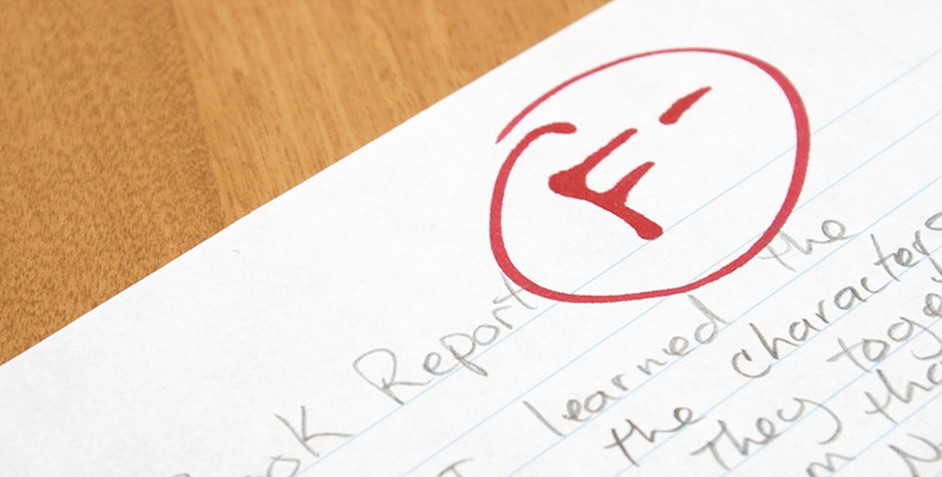 F-
Book Report
I learned the
the characters
They toge
m tha